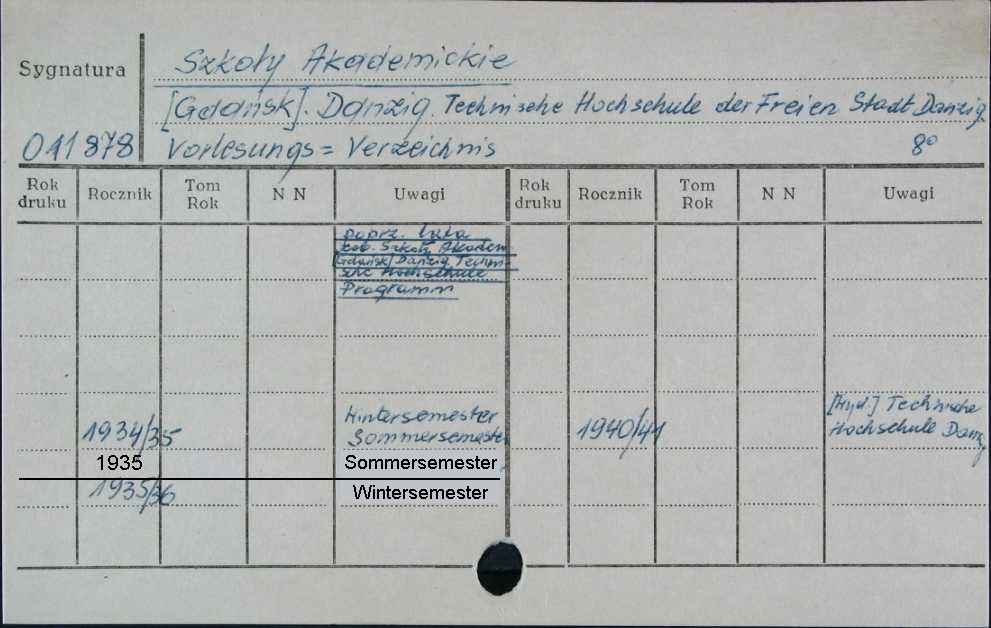 Sygnatura
Szkoły Akademickie
[Gdańsk]. Danzig. Technische Hochschule der Freien Stadt Danzig.
011878 Vorlesungs = Verzeichnis 8°
Rok druku Rocznik Tom Rok N N Uwagi Rok druku Rocznik Tom Rok N N Uwagi
poprz. lata
zob. Szkoły Akadem.
[Gdańsk] Danzig Techni-
sche Hochschule
Programm
Wintersemester [Wyd.] Technische
1934/35 Sommersemester 1940/41 Hochschule Danzig
1935 Sommersemester
1935/36 Wintersemester